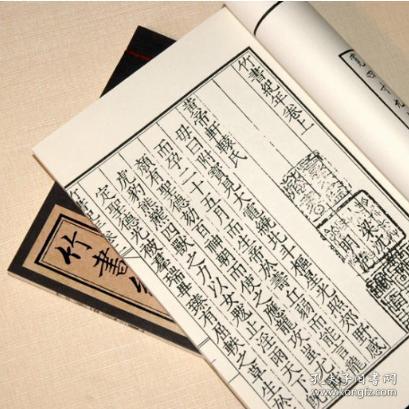 竹書紀年卷上
黃帝軒轅氏
母曰附寶見大電繞北斗樞星光照郊野感
而孕二十五月而生帝於壽丘弱而能言龍
顏有聖德劾百神朝而使之應龍攻蚩尤戰
虎豹熊羆四獸之力以女魃止淫雨天下既
定聖德光被羣瑞畢臻有屈軼之草生於
竹書
孔夫子旧书网
kongfz.com